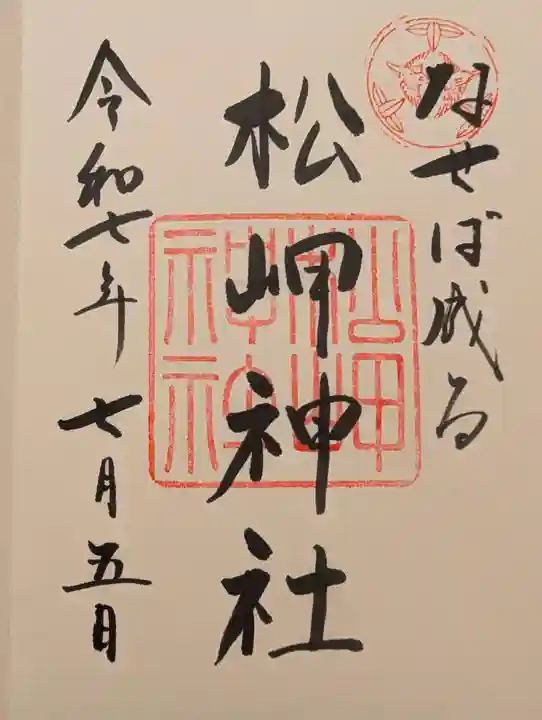 なせば成る
松岬神社
松岬神社
令和七年 七月五日